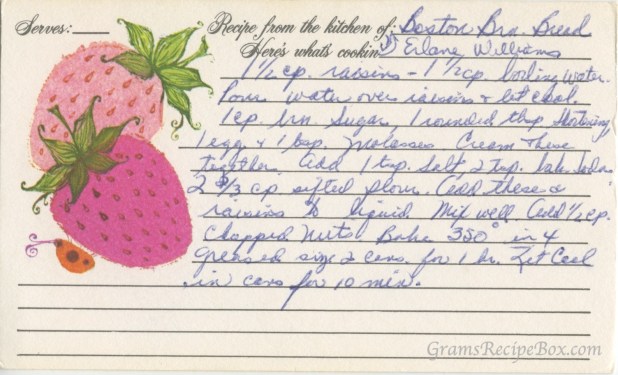 Serves:
Recipe from the kitchen of: Boston Brn. Bread
Here's what's cookin' Erlane Williams
1 1/2 cp. raisins - 1 1/2 cp. boiling water.
Pour water over raisins & let cool.
1 cp. brn. sugar, 1 rounded tbsp shortening
1 egg & 1 tbsp. molasses Cream these
together. Add 1 tsp. salt 2 tsp. bake soda
2 2/3 cp sifted flour. Add these &
raisins & liquid. Mix well. Add 1/2 cp.
chopped nuts. Bake 350° in 4
greased size 2 cans. for 1 hr. Let Cool
in cans for 10 min.
GramsRecipeBox.com